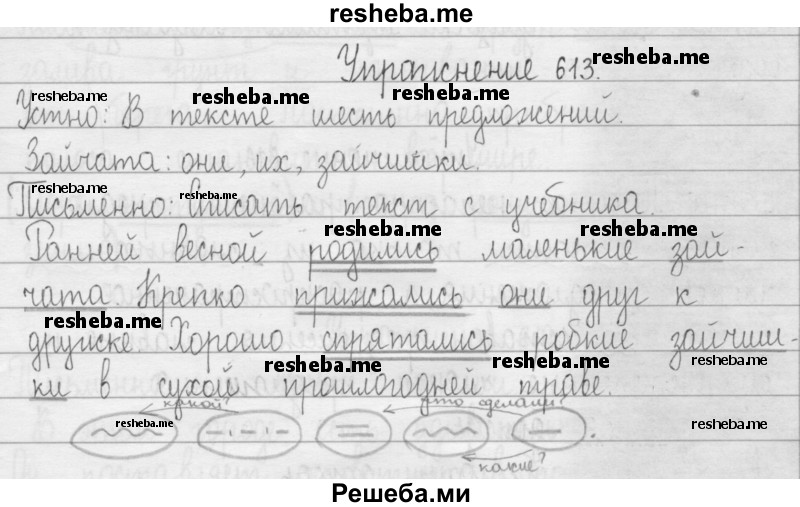 resheba.me
Упражнение 613.
resheba.me
resheba.me resheba.me resheba.me
Устно: В тексте шесть предложений.
Зайчата: они, их, зайчишки.
resheba.me resheba.me
Письменно: Списать текст с учебника.
resheba.me resheba.me
Ранней весной родились маленькие зай-
чата. Крепко прижались они друг к
resheba.me
дружке. Хорошо спрятались робкие зайчиш-
resheba.me resheba.me resheba.me
ки в сухой прошлогодней траве.
какой? что сделали?
resheba.me resheba.me
какие?
Решеба.ми